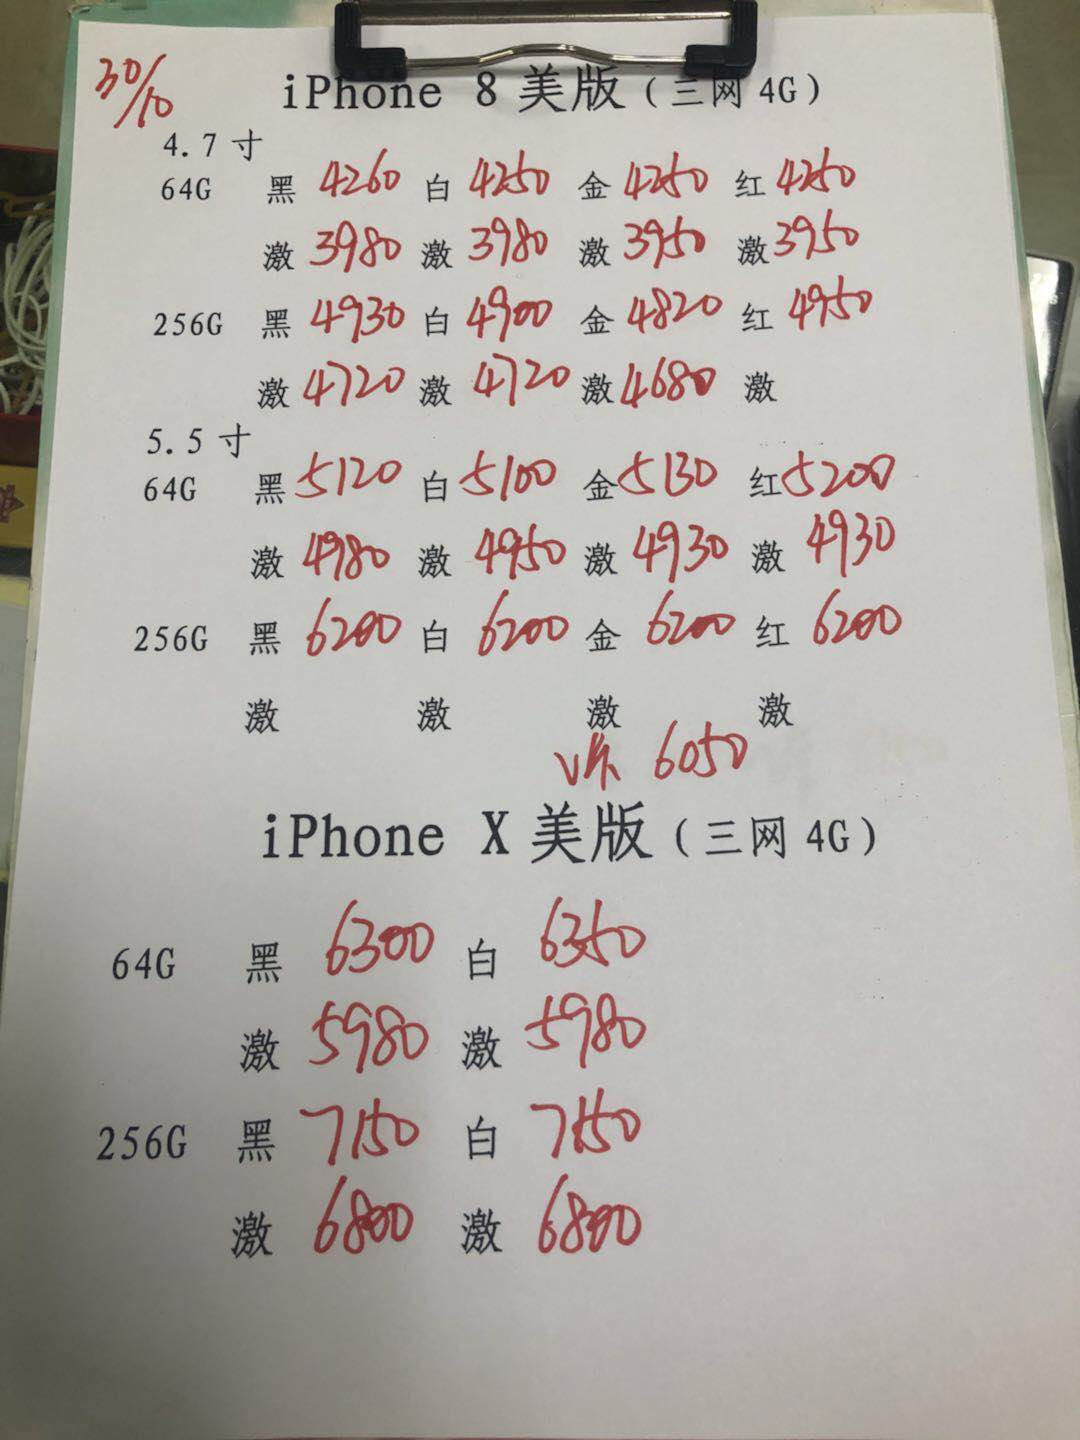 30/10
iPhone 8 美版（三网 4G）
4.7 寸
64G 黑 4260 白 4250 金 4250 红 4250
激 3980 激 3980 激 3950 激 3950
256G 黑 4930 白 4900 金 4820 红 4950
激 4720 激 4720 激 4680 激
5.5 寸
64G 黑 5120 白 5100 金 5130 红 5200
激 4980 激 4950 激 4930 激 4930
256G 黑 6200 白 6200 金 6200 红 6200
激 激 激 激
6050
iPhone X 美版（三网 4G）
64G 黑 6300 白 6350
激 5980 激 5980
256G 黑 7150 白 7150
激 6800 激 6800